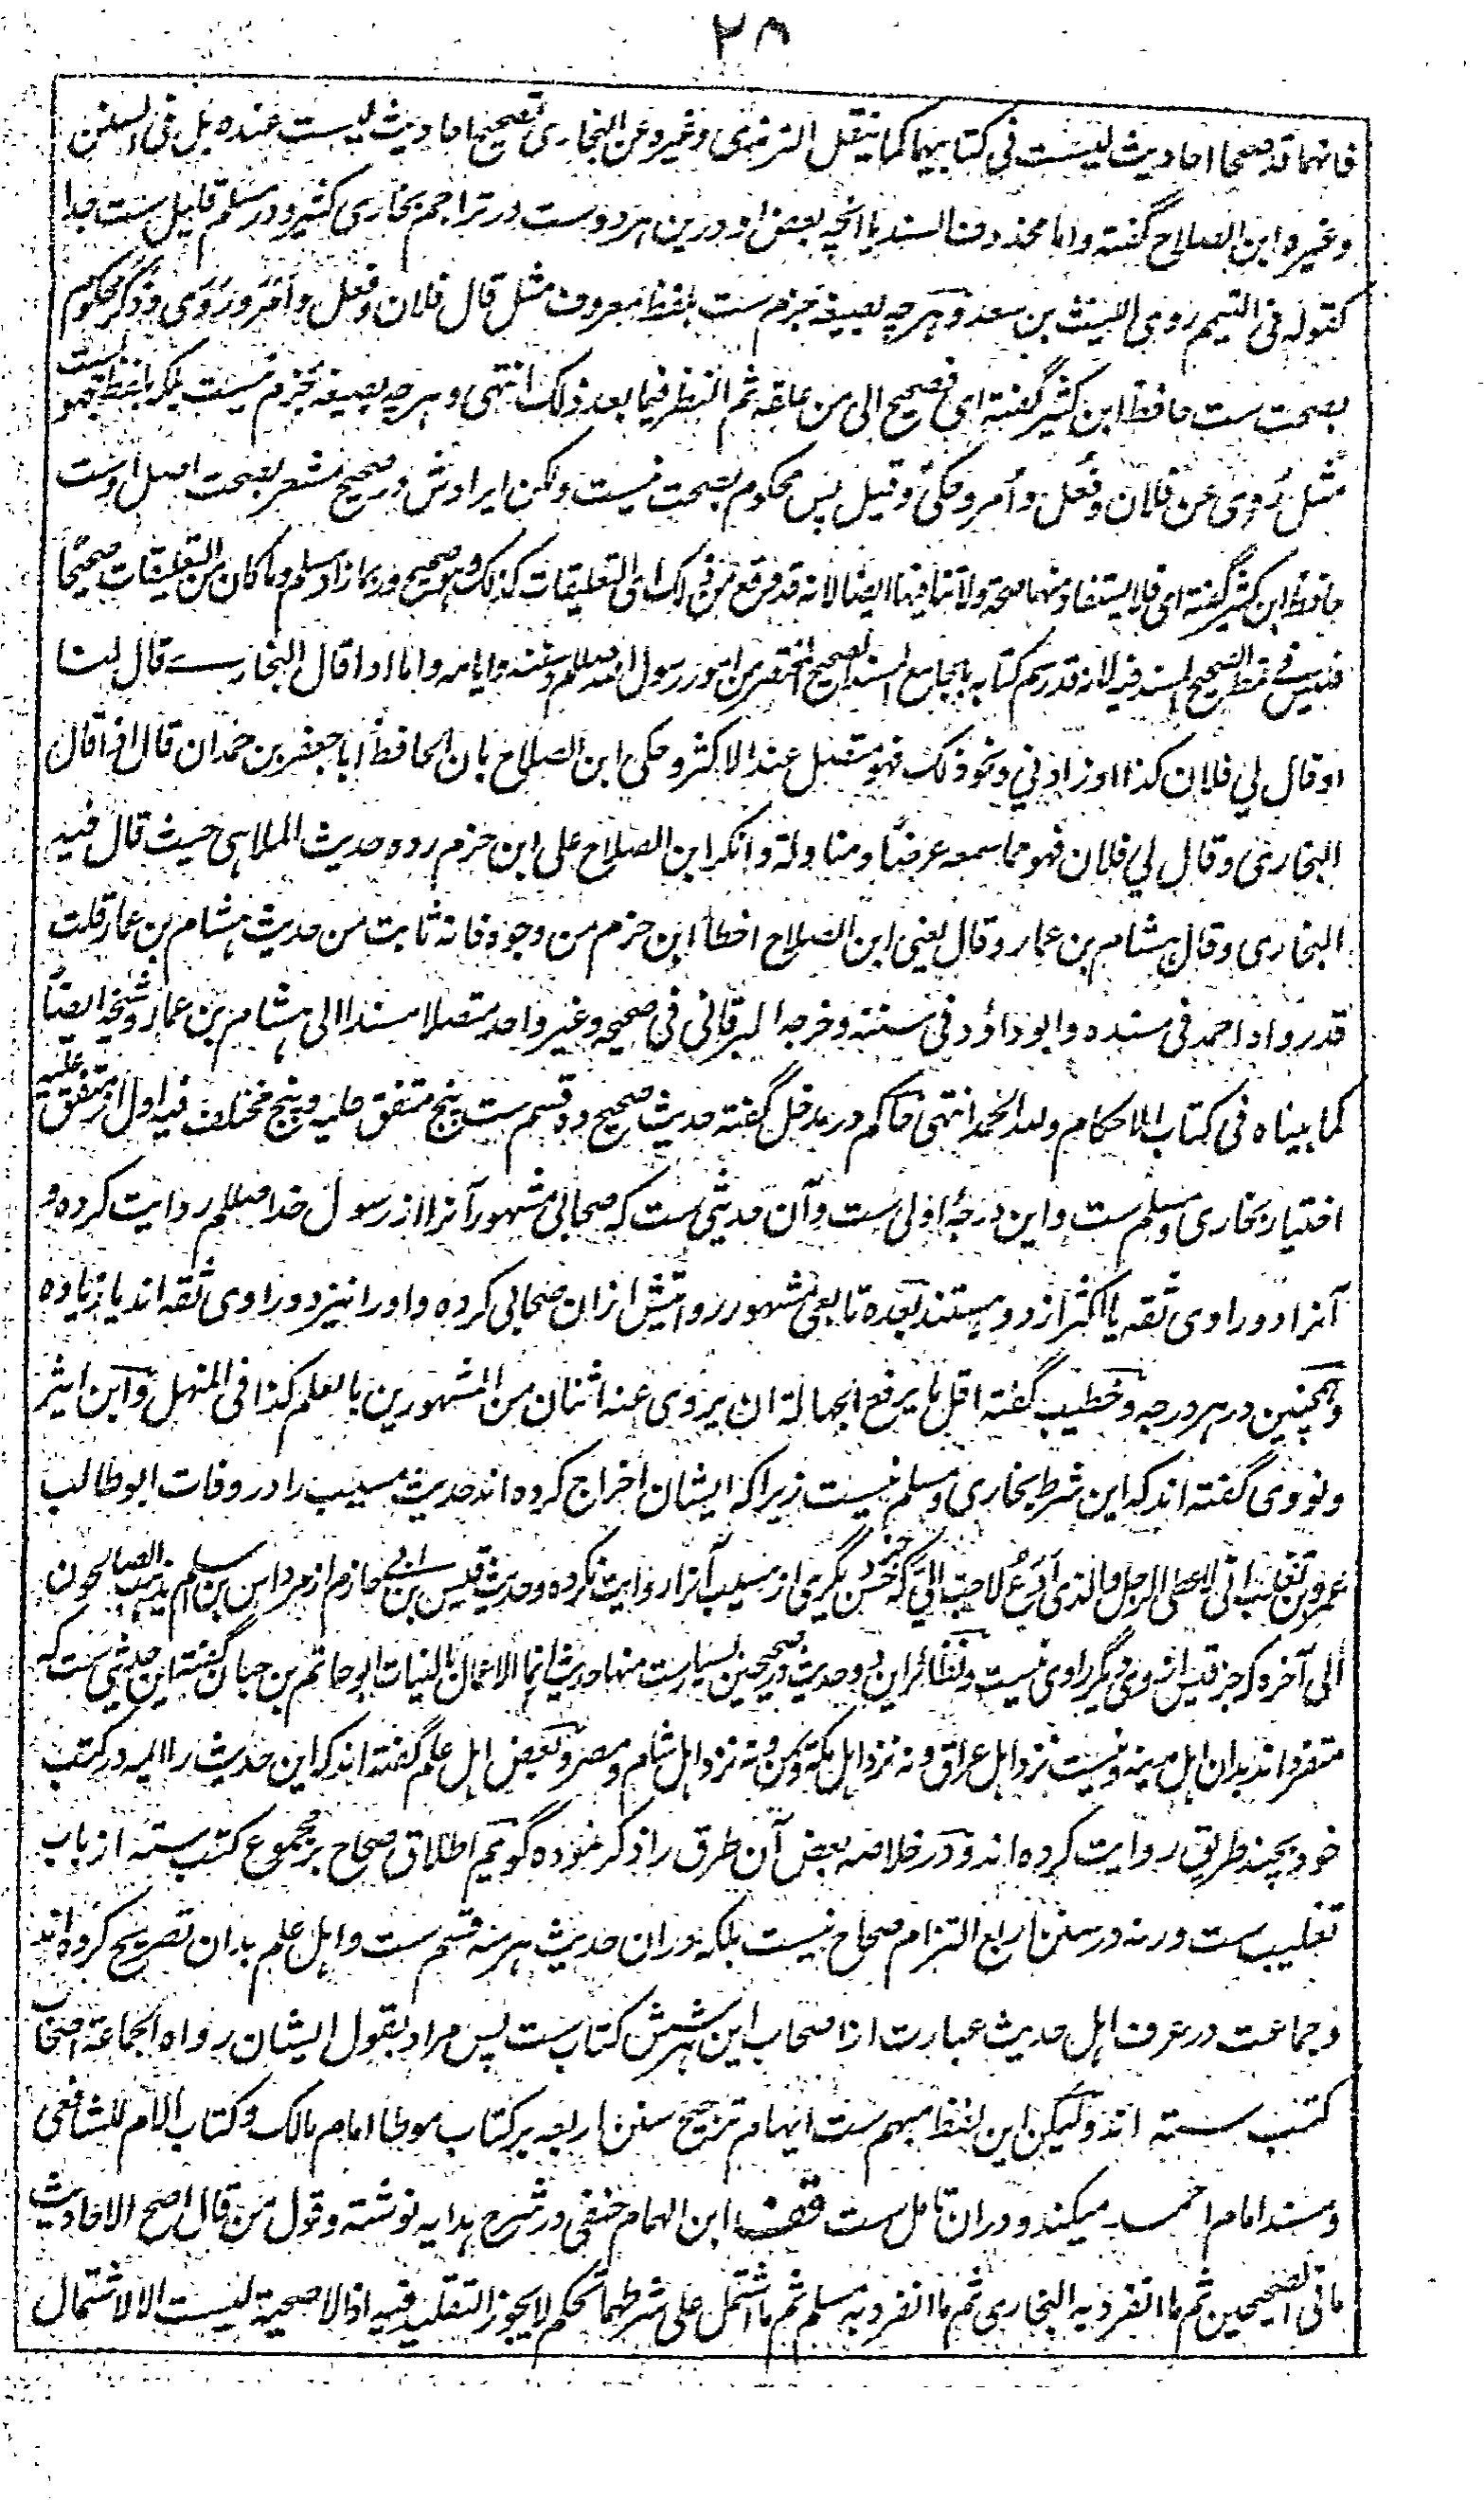 ٢٨
فانهما قد صححا احادیث لیست فی کتابیهما کما ینقل الترمذی و غیره عن البخاری تصحیح احادیث لیست عنده بل فی السنن
و غیره ابن الصلاح گفته و اما محذوف السند یا انچه بعض او درین هر دوست در تراجم بخاری کثیر و در مسلم قلیل ست جدا
کقوله فی التیمم روی اللیث بن سعد و هر چه بصیغه جزم ست بلفظ معروف مثل قال فلان و فعل و امر و روی و ذکر محکوم
بصحت ست حافظ ابن کثیر گفته ای فصحیح الی من علقه ثم النظر فیما بعد ذلک انتهی و هر چه بصیغه بجزم نیست بلکه بلفظ مجهول ست
مثل رُوی عن فلان و فُعل و اُمر و حکی و قیل پس محکوم بصحت نیست ولکن ایرادش در صحیح مشعر بصحت اصل اوست
حافظ ابن کثیر گفته ای فلا یستفاد منها صحة ولا تنافیها ایضا لانه قد وقع من ذلک ای التعلیقات کذلک و هو صحیح و ربما رواه مسلم و ما کان من التعلیقات صحیحًا
فلیس من نمط الصحیح المسند فیه لانه قد وسم کتابه بالجامع المسند الصحیح المختصر من امور رسول الله صلعم و سننه و ایامه و اما اذا قال البخاری قال لنا
او قال لی فلان کذا او زادنی و نحو ذلک فهو متصل عند الاکثر و حکی ابن الصلاح بان الحافظ ابا جعفر بن حمدان قال اذا قال
البخاری و قال لی فلان فهو مما سمعه عرضًا و مناولة و انکر ابن الصلاح علی ابن حزم رده حدیث الملاهی حیث قال فیه
البخاری و قال هشام بن عمار و قال یعنی ابن الصلاح اخطأ ابن حزم من وجوه فانه ثابت من حدیث هشام بن عمار قلت
قد رواه احمد فی مسنده و ابو داؤد فی سننه و خرجه البرقانی فی صحیحه و غیر واحد متصلا مسندا الی هشام بن عمار و شیخه ایضًا
کما بیناه فی کتاب الاحکام و لله الحمد انتهی حاکم در مدخل گفته حدیث صحیح ده قسم ست پنج متفق علیه و پنج مختلف فیه اول از متفق علیه
اختیار بخاری و مسلم ست و این درجهٔ اولی ست و آن حدیثی ست که صحابی مشهور آنرا از رسول خدا صلعم روایت کرده و
آنرا دو راوی ثقه یا اکثر از دو هستند بعده تابعی مشهور روایتش ازان صحابی کرده و او را نیز دو راوی ثقه اند یا زیاده
و همچنین در هر درجه و خطیب گفته اقل ما یرفع الجهالة ان یروی عنه اثنان من المشهورین بالعلم کذا فی المنهل و ابن اثیر
و نووی گفته اند که این شرط بخاری و مسلم نیست زیرا که ایشان اخراج کرده اند حدیث مسیب را در وفات ابو طالب
عمرو بن تغلب انی لاعطی الرجل والذی ادع احب الیَّ که جز حسن دیگری از مسیب آنرا روایت نکرده و حدیث قیس بن ابی حازم از مرداس بن مسلم یذهب الصالحون
الی آخره که جز قیس از وی دیگر راوی نیست و نظائر این دو حدیث در صحیحین بسیارست منها حدیث انما الاعمال بالنیات ابو حاتم بن حبان گفته این حدیثی ست که
متفرد اند بدان اهل مدینه و نیست نزد اهل عراق و نه نزد اهل مکه و یمن و نه نزد اهل شام و مصر و بعض اهل علم گفته اند که این حدیث را ائمه در کتب
خود بچند طریق روایت کرده اند و در خلاصه بعض آن طرق را ذکر نموده گویم اطلاق صحاح بر مجموع کتب سته از باب
تغلیب ست ورنه در سنن اربع التزام صحاح نیست بلکه دران حدیث هر سه قسم ست و اهل علم بدان تصریح کرده اند
و جماعت در عرف اهل حدیث عبارت از اصحاب این هر شش کتاب ست پس مراد بقول ایشان رواه الجماعة اصحاب
کتب سته اند ولیکن این لفظ مبهم ست ایهام ترجیح سنن اربعه بر کتاب موطا امام مالک و کتاب الام للشافعی
و مسند امام احمد میکند و دران تامل ست قف ابن الهمام حنفی در شرح هدایه نوشته و قول من قال اصح الاحادیث
ما فی الصحیحین ثم ما انفرد به البخاری ثم ما انفرد به مسلم ثم ما اشتمل علی شرطهما تحکم لا یجوز التقلید فیه اذ الاصحیة لیست الا لاشتمال